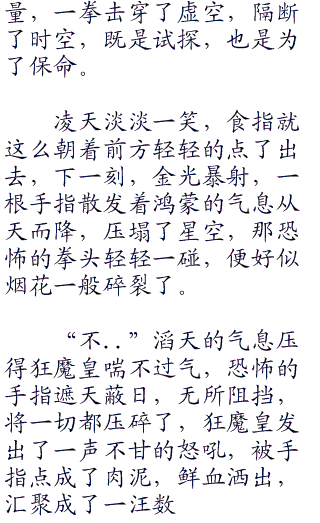 量，一拳击穿了虚空，隔断
了时空，既是试探，也是为
了保命。
凌天淡淡一笑，食指就
这么朝着前方轻轻的点了出
去，下一刻，金光暴射，一
根手指散发着鸿蒙的气息从
天而降，压塌了星空，那恐
怖的拳头轻轻一碰，便好似
烟花一般碎裂了。
“不..”滔天的气息压
得狂魔皇喘不过气，恐怖的
手指遮天蔽日，无所阻挡，
将一切都压碎了，狂魔皇发
出了一声不甘的怒吼，被手
指点成了肉泥，鲜血洒出，
汇聚成了一汪数